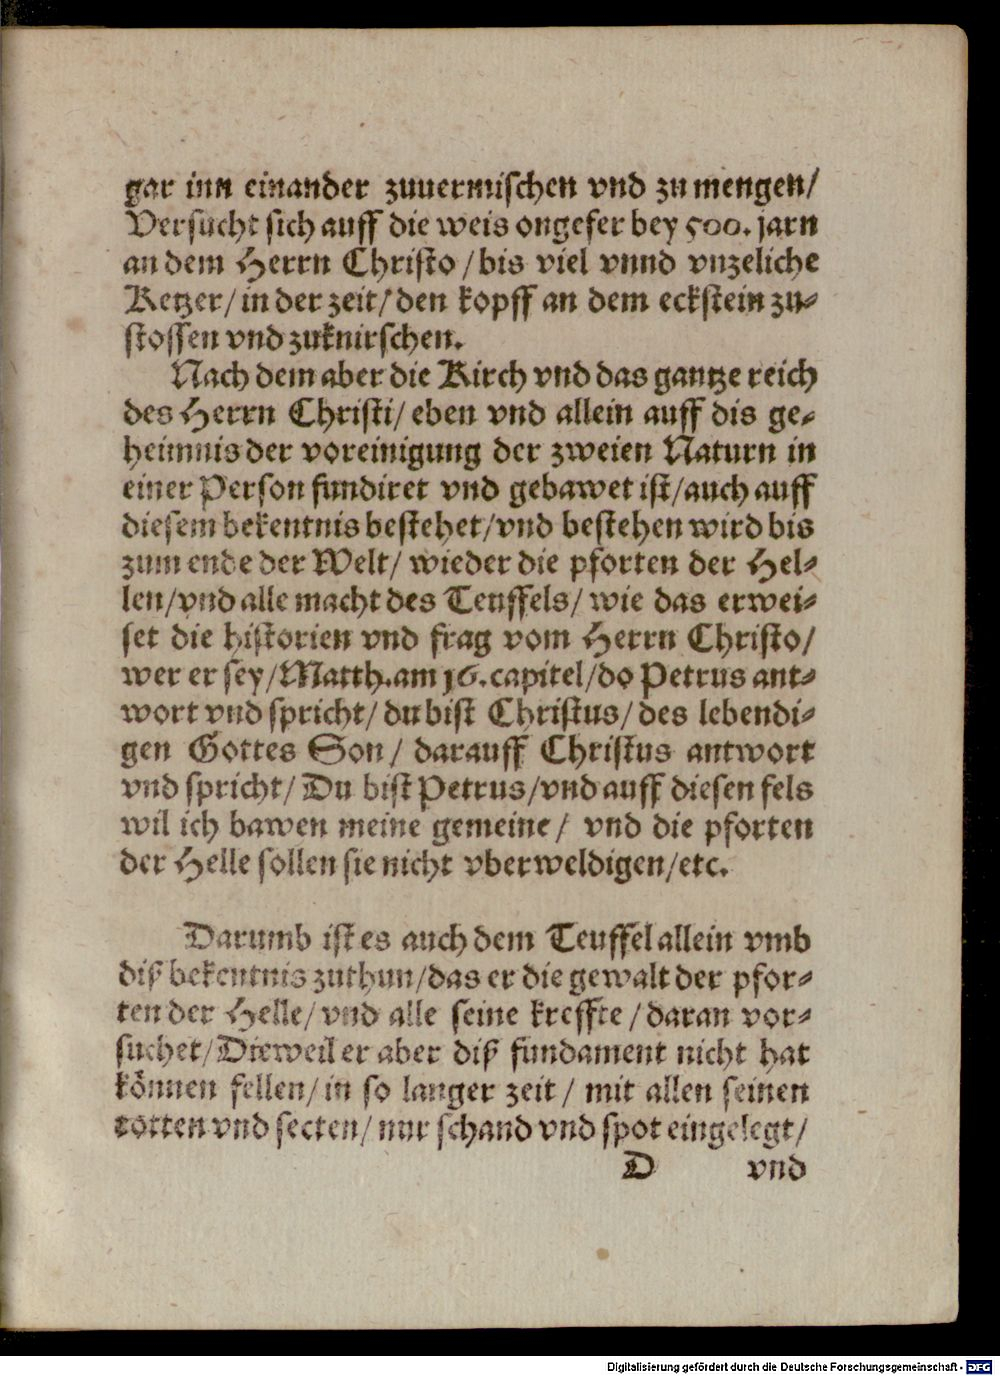 gar inn einander zuuermischen vnd zu mengen/
Versucht sich auff die weis ongefer bey 500. jarn
an dem Herrn Christo / bis viel vnnd vnzeliche
Ketzer/ in der zeit/ den kopff an dem eckstein zu-
stossen vnd zuknirschen.
Nach dem aber die Kirch vnd das gantze reich
des Herrn Christi/ eben vnd allein auff dis ge-
heimnis der voreinigung der zweien Naturn in
einer Person fundiret vnd gebawet ist/ auch auff
diesem bekentnis bestehet/ vnd bestehen wird bis
zum ende der Welt/ wieder die pforten der Hel-
len/ vnd alle macht des Teuffels/ wie das erwei-
set die historien vnd frag vom Herrn Christo/
wer er sey/ Matth. am 16. capitel/ do Petrus ant-
wort vnd spricht/ du bist Christus/ des lebendi-
gen Gottes Son/ darauff Christus antwort
vnd spricht/ Du bist Petrus/ vnd auff diesen fels
wil ich bawen meine gemeine/ vnd die pforten
der Helle sollen sie nicht vberweldigen/ etc.
Darumb ist es auch dem Teuffel allein vmb
diß bekentnis zuthun/ das er die gewalt der pfor-
ten der Helle/ vnd alle seine kreffte / daran vor-
suchet/ Dieweil er aber diß fundament nicht hat
können fellen/ in so langer zeit / mit allen seinen
rotten vnd secten/ nur schand vnd spot eingelegt/
D vnd
Digitalisierung gefördert durch die Deutsche Forschungsgemeinschaft - DFG